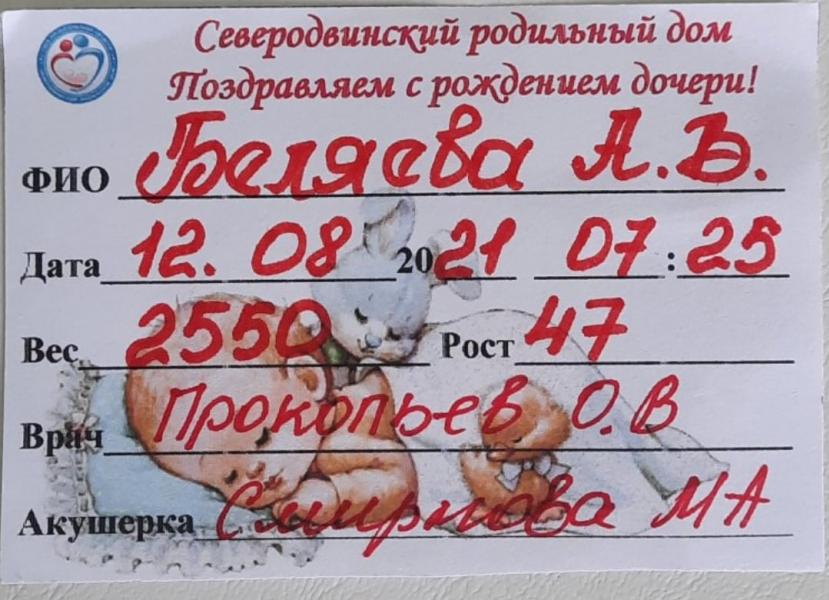 Северодвинский родильный дом
Поздравляем с рождением дочери!
ФИО Беляева А.В.
Дата 12. 08 2021 07:25
Вес 2550 Рост 47
Врач Прокопьев О.В
Акушерка Смирнова МА